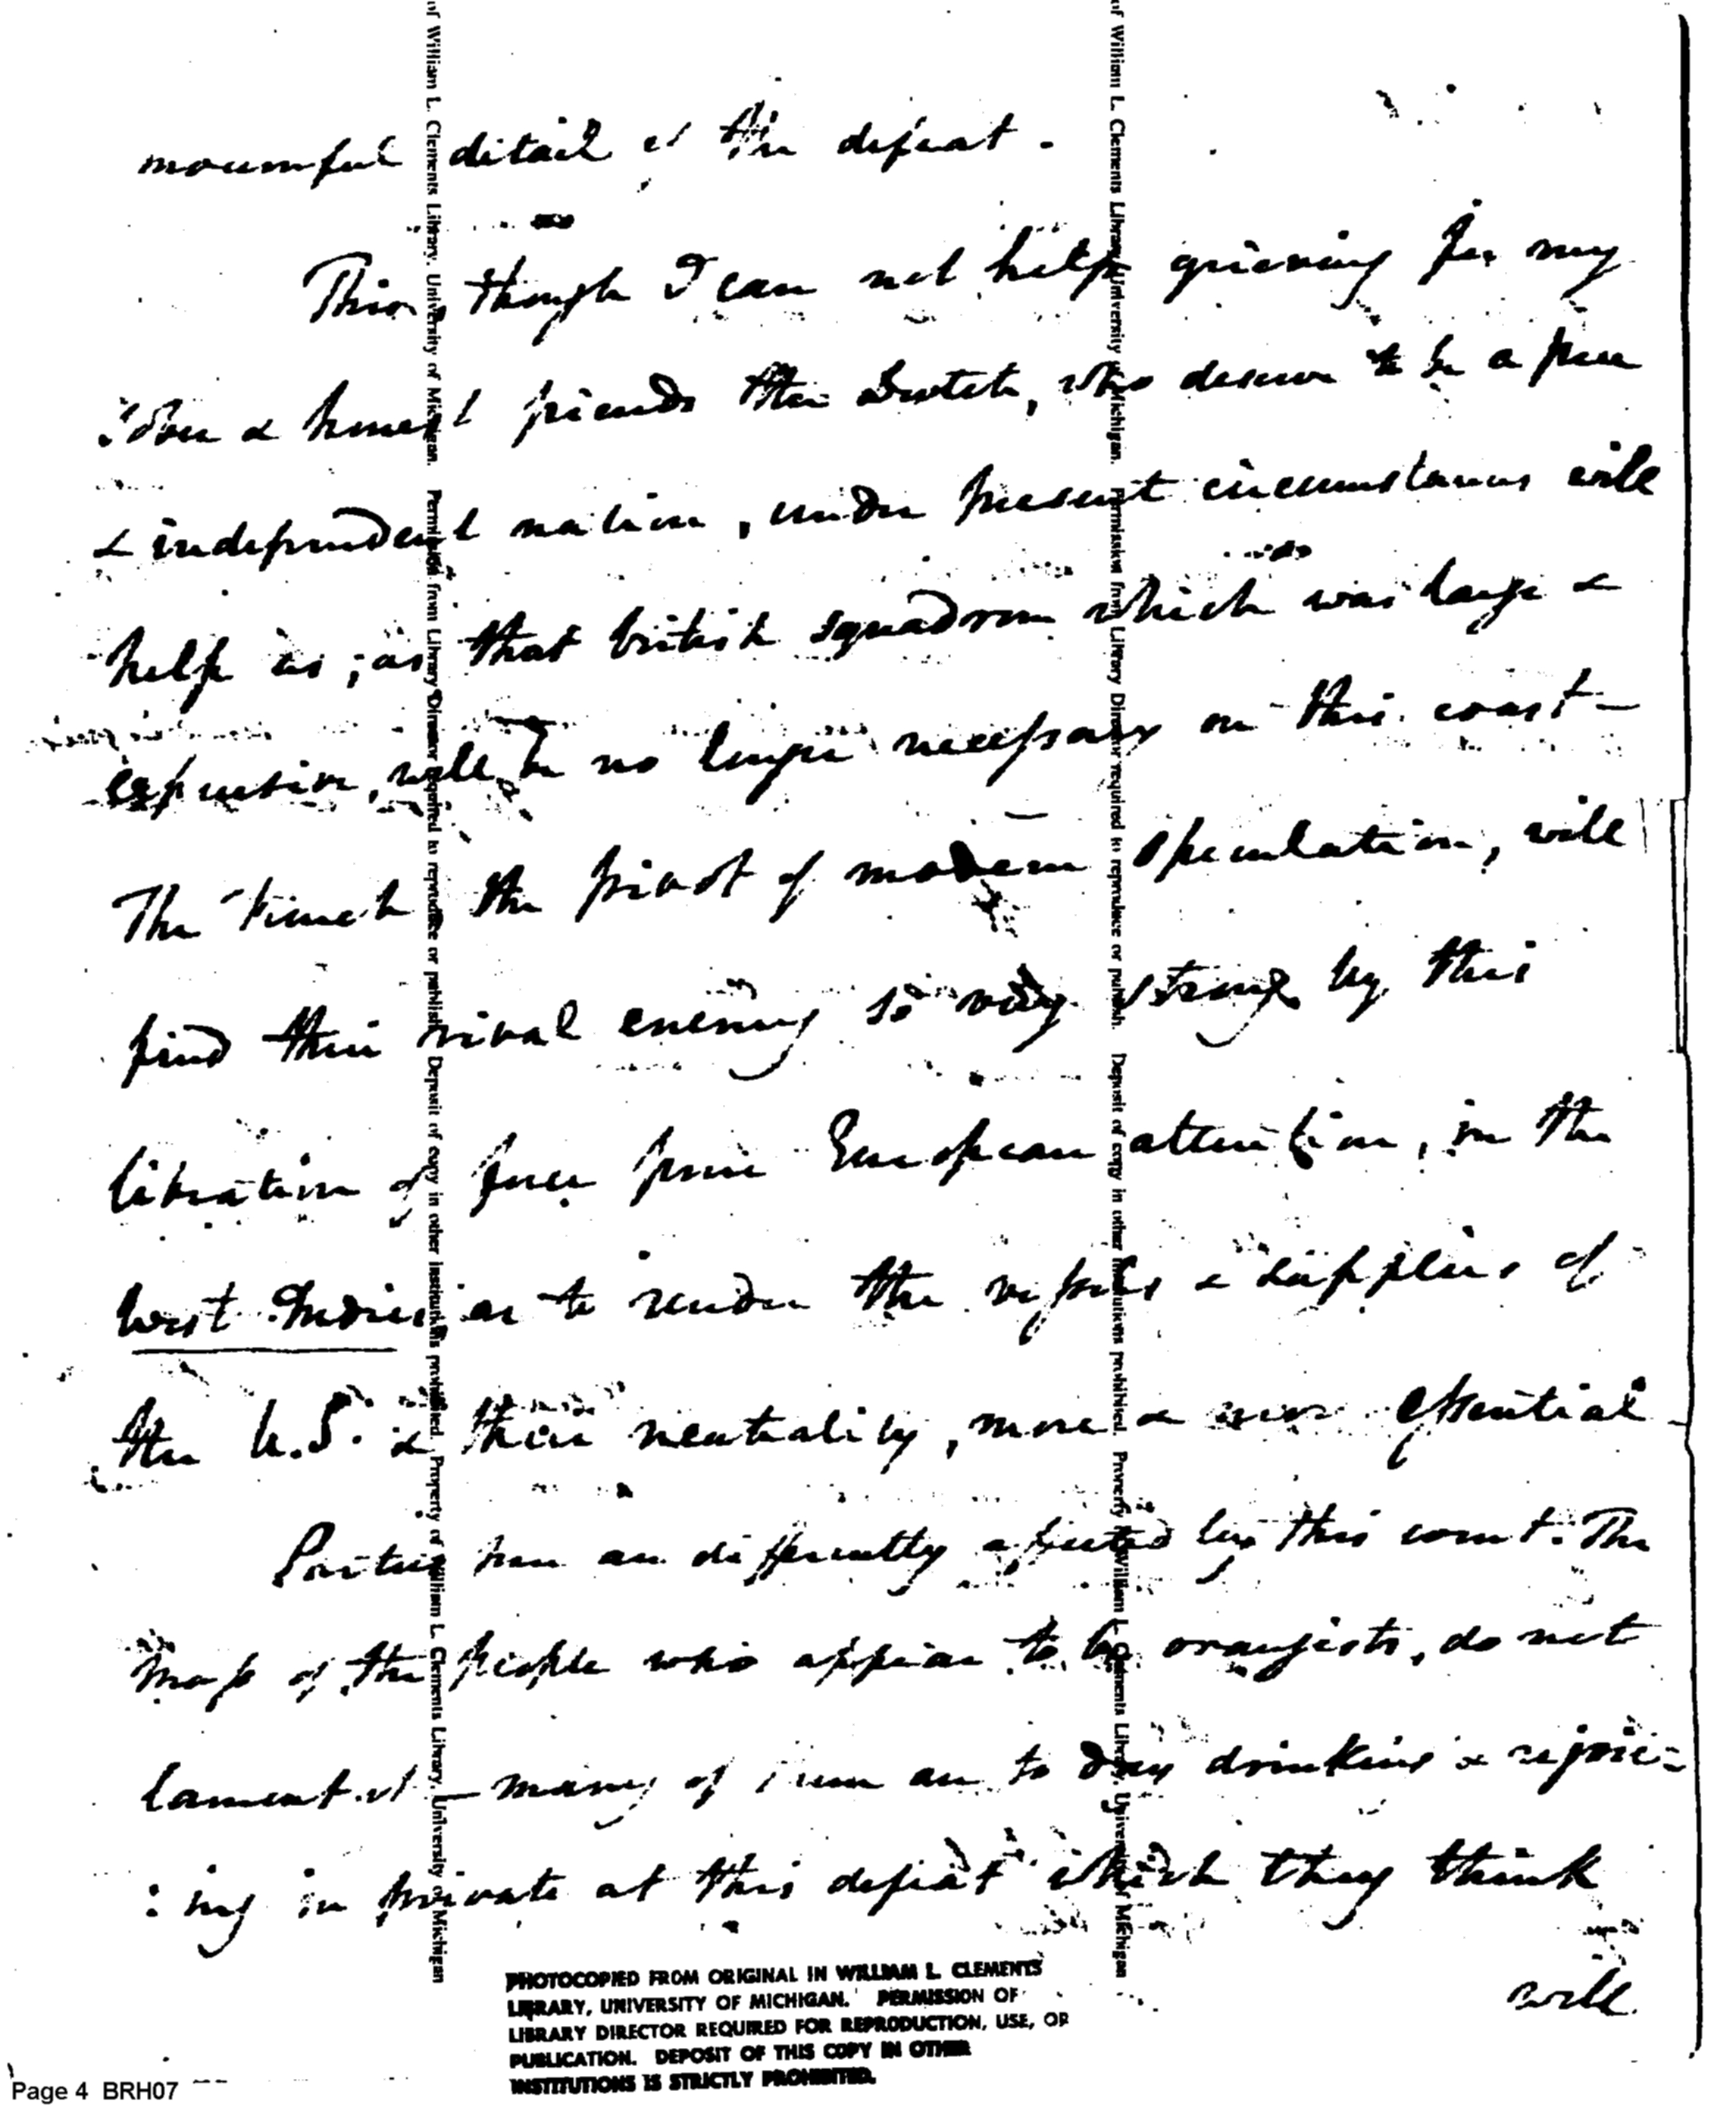 mournful detail of the defeat.
This though I can not help grieving for my
sober & honest friends the Dutch, who deserve to be a free
& independent nation, under present circumstances will
help us; as that british squadron which was large &
expensive, will be no longer necessary on this coast—
The French the pivot of modern speculation, will
find their rival enemy so very strong by this
libration of force from European attention, in the
West Indies as to render the vessels & supplies of
the U.S. & their neutrality, more & more essential
Parties here are differently affected by this event. The
Mass of the people who appear to be orangists, do not
lament it — many of them are to day drinking & rejoic=
:ing in private at this defeat which they think
will
of William L. Clements Library, University of Michigan. Permission from Library Director required to reproduce or publish. Deposit of copy in other institutions prohibited. Property of William L. Clements Library, University of Michigan
of William L. Clements Library, University of Michigan. Permission from Library Director required to reproduce or publish. Deposit of copy in other institutions prohibited. Property of William L. Clements Library, University of Michigan
PHOTOCOPIED FROM ORIGINAL IN WILLIAM L. CLEMENTS
LIBRARY, UNIVERSITY OF MICHIGAN. PERMISSION OF
LIBRARY DIRECTOR REQUIRED FOR REPRODUCTION, USE, OR
PUBLICATION. DEPOSIT OF THIS COPY IN OTHER
INSTITUTIONS IS STRICTLY PROHIBITED.
Page 4 BRH07